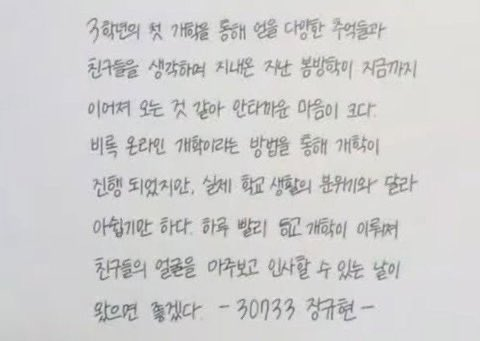 3학년의 첫 개학을 통해 얻을 다양한 추억들과
친구들을 생각하며 지내온 지난 봄방학이 지금까지
이어져 오는 것 같아 안타까운 마음이 크다.
비록 온라인 개학이라는 방법을 통해 개학이
진행 되었지만, 실제 학교 생활의 분위기와 달라
아쉽기만 하다. 하루 빨리 등교 개학이 이뤄져
친구들의 얼굴을 마주보고 인사할 수 있는 날이
왔으면 좋겠다. - 30733 장규현 -